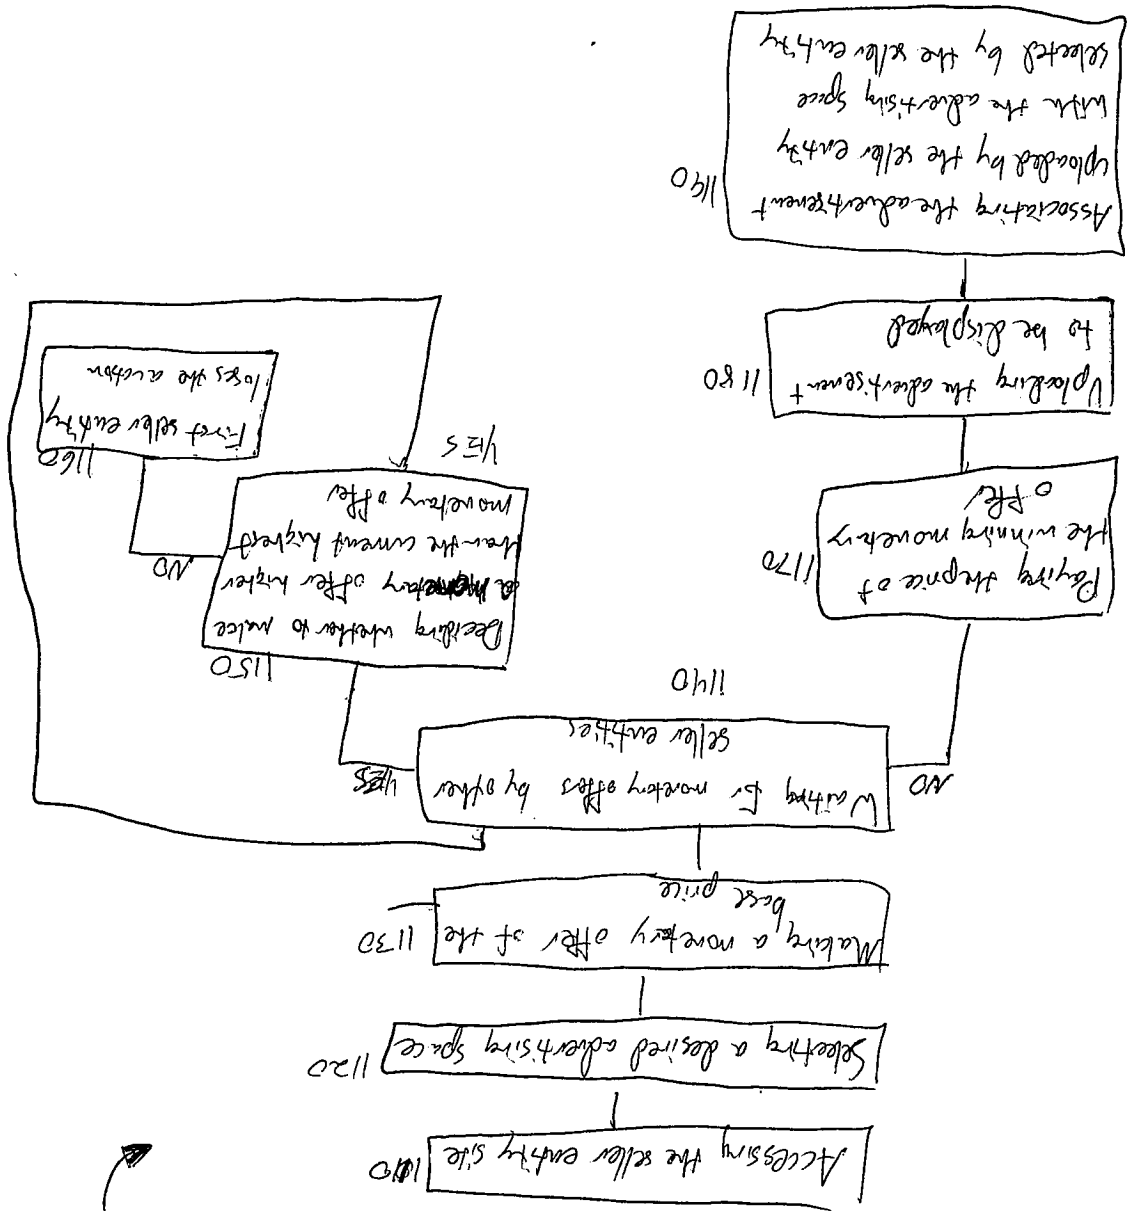 Accessing the seller entity site
1110
Selecting a desired advertising space
1120
Making a monetary offer of the
base price
1130
Waiting for monetary offers by other
seller entities
1140
NO
YES
Deciding whether to make
a monetary offer higher
than the current highest
monetary offer
1150
YES
NO
First seller entity
loses the auction
1160
Paying the price of
the winning monetary
offer
1170
Uploading the advertisement
to be displayed
1180
Associating the advertisement
uploaded by the seller entity
with the advertising space
selected by the seller entity
1190